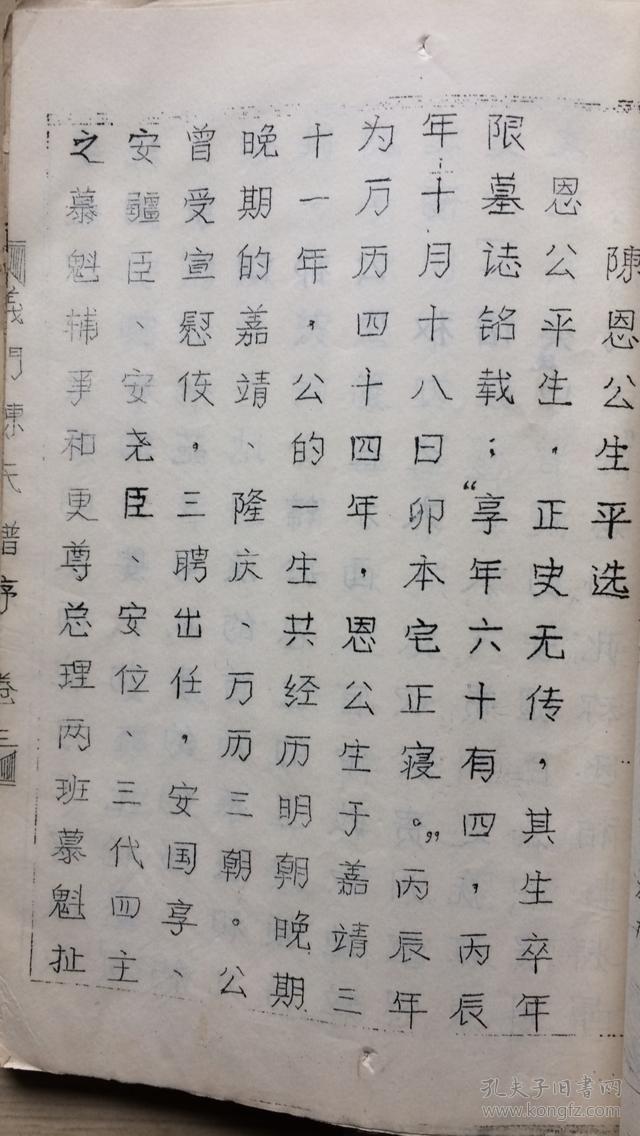 陳恩公生平选
恩公平生，正史无传，其生卒年
限墓誌铭载：“享年六十有四，丙辰
年十月十八日卯本宅正寝。”丙辰年
为万历四十四年，恩公生于嘉靖三
十一年，公的一生共经历明朝晚期
晚期的嘉靖、隆庆、万历三朝。公
曾受宣慰使，三聘出任，安国享、
安疆臣、安尧臣、安位、三代四主
之慕魁辅爭和更尊总理两班慕魁扯
義門陳氏譜序 卷三
孔夫子旧书网
www.kongfz.com